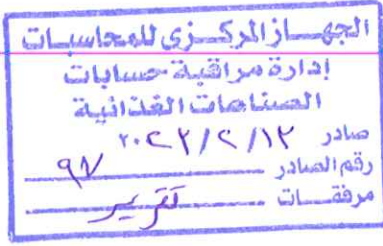 الجهاز المركزى للمحاسبات
إدارة مراقبة حسابات
الصناعات الغذائية
صادر ١٢/٢/٢٠٢٣
رقم الصادر ٩٧
مرفقات تقرير